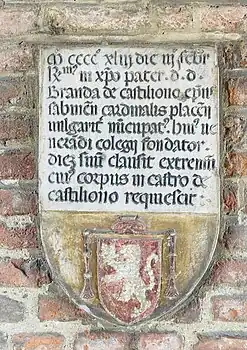 M cccc xliii die iii febr
R mus in xpo pater . d . d .
Branda de castiliono epus
sabinen cardinalis placen
vulgarit nucupat . hui ve
neradi colegii fondator .
diez suu clausit extremu
cui corpus in castro de
castiliono requiescit .